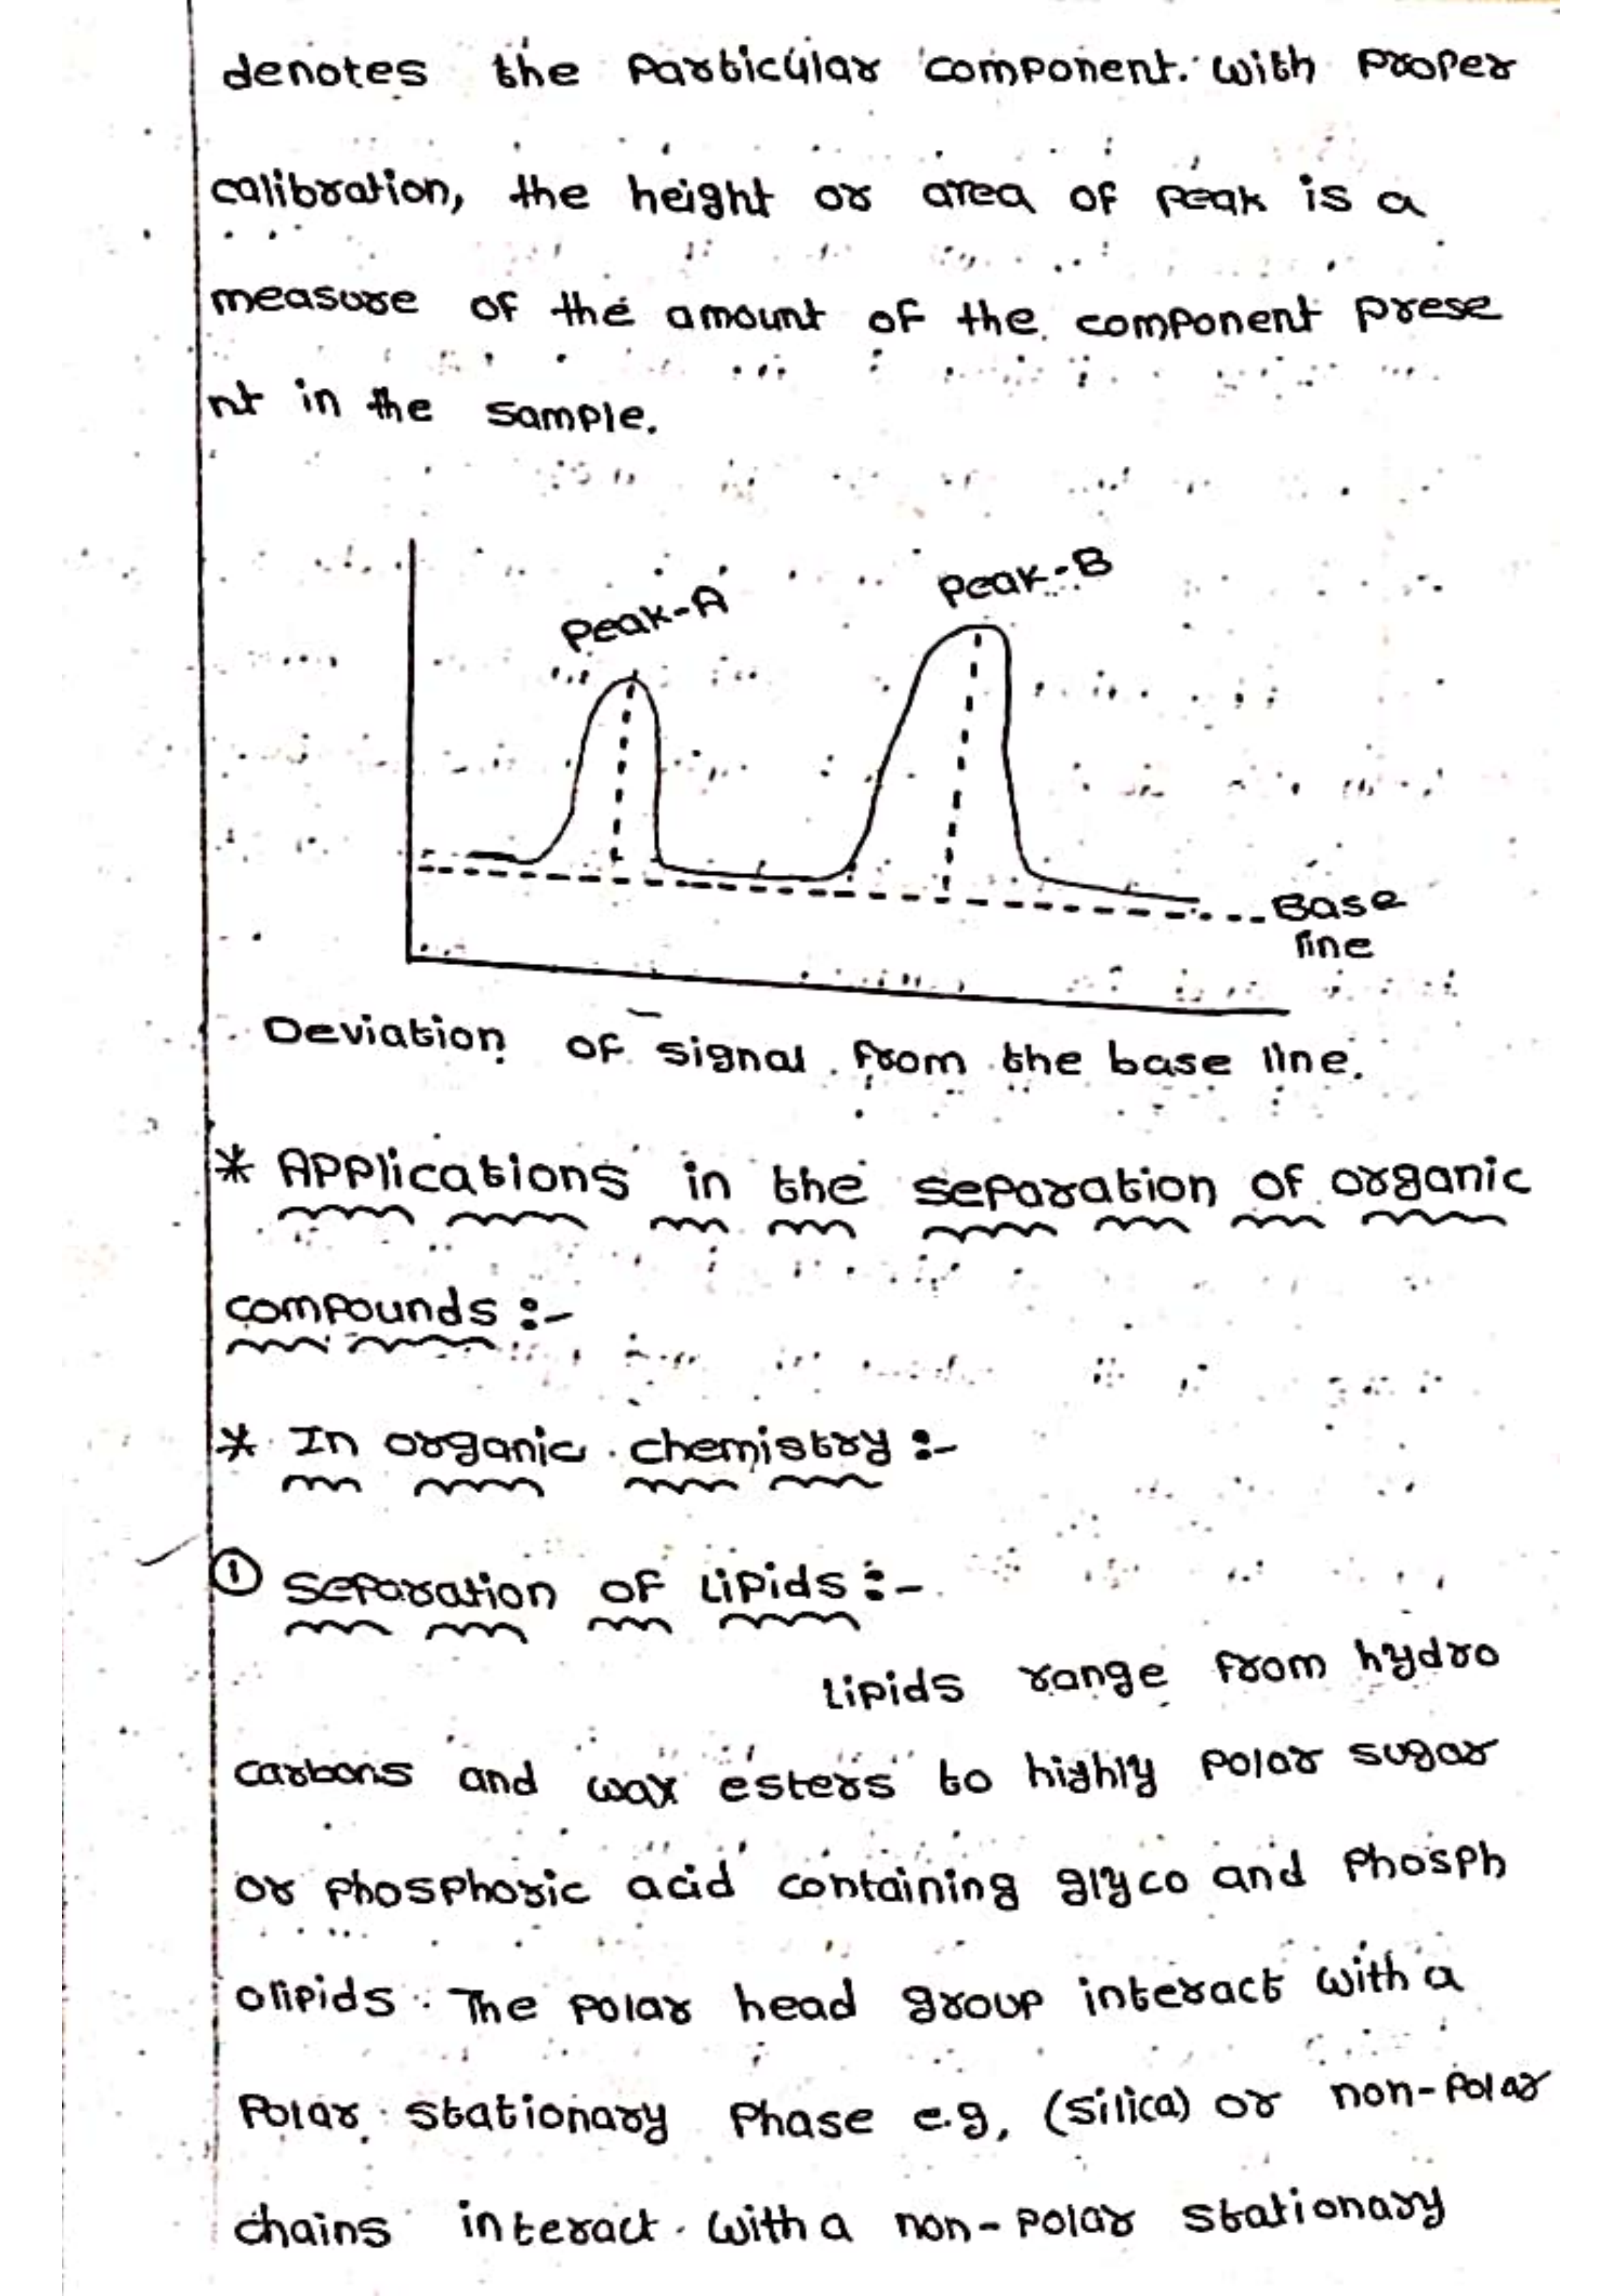 denotes the Particular component. with proper
calibration, the height or area of peak is a
measure of the amount of the component prese
nt in the sample.
Peak-A
Peak-B
Base
line
Deviation of signal from the base line.
* Applications in the separation of organic
compounds :-
* In organic chemistry :-
① Separation of Lipids :-
Lipids range from hydro
carbons and wax esters to highly polar sugar
or phosphoric acid containing glyco and phosph
olipids. The polar head group interact with a
Polar stationary Phase e.g, (silica) or non-polar
chains interact with a non-polar stationary